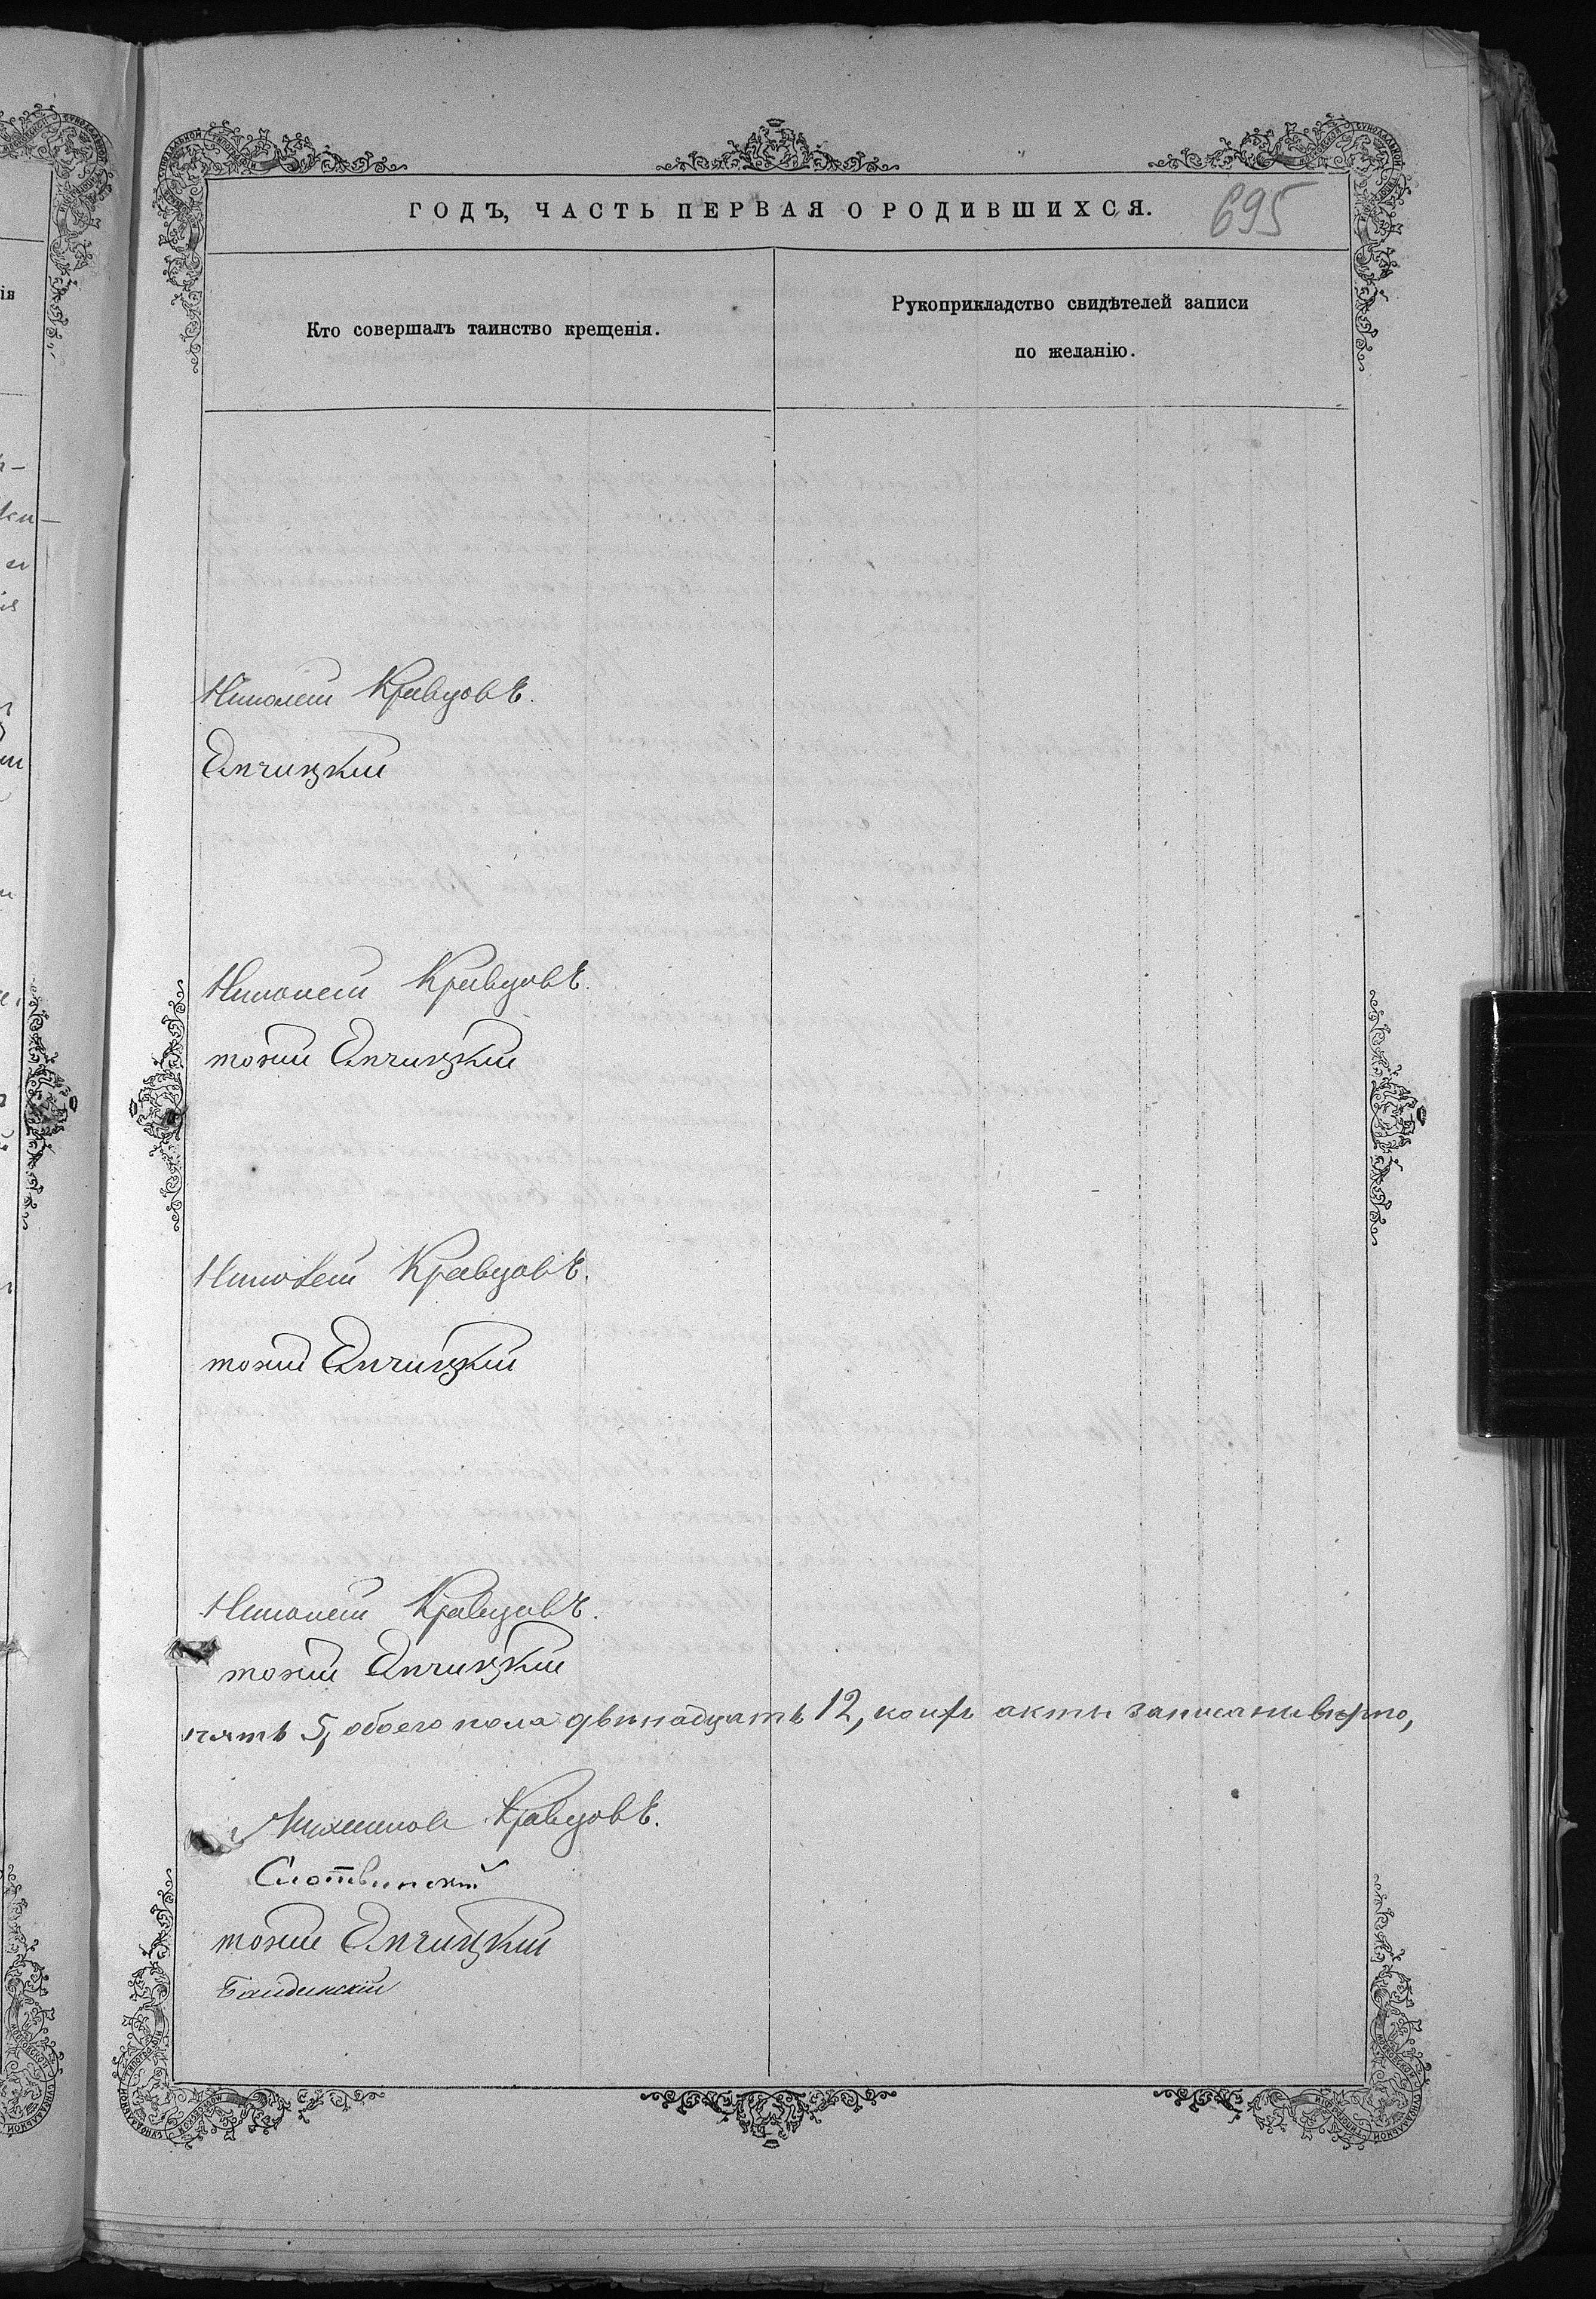 ГОДЪ, ЧАСТЬ ПЕРВАЯ О РОДИВШИХСЯ.
695
Кто совершалъ таинство крещенія.
Рукоприкладство свидѣтелей записи
по желанію.
Николай Кравцовъ.
Епчицкій
Николай Кравцовъ.
тоній Епчицкій
Николай Кравцовъ.
тоній Епчицкій
Николай Кравцовъ.
тоній Епчицкій
пять 5, обоего пола двѣнадцать 12, коихъ акты записаны вѣрно,
Кравцовъ.
Слотвинскій
тоній Епчицкій